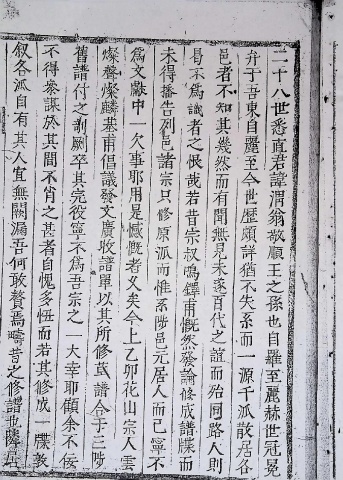 二十八世悉直君諱渭翁敬順王之孫也自羅至麗赫世冠冕
弁于吾東自麗至今世歷頗詳猶不失系而一源千派散居各
邑者不知其幾然而有聞無見未遂百代之誼而殆同路人則
曷不爲識者之恨哉若昔宗叔鳴鐸甫慨然發論修成譜牒而
未得播告列邑諸宗只修原派而惟系陟邑元居人而已寧不
爲文獻中一欠事耶用是慨慨者久矣今上乙卯花山宗人雲
燦聲燦麟基甫倡議發文廣收譜單以其所修咸譜合于三陟
舊譜付之剞劂卒其完役寧不爲吾宗之一大幸耶顧余不佞
不得參謀於其間不肖之甚者自愧多忸而若其修成一牒敦
叙各派自有其人宜無闕漏吾何敢贅焉疇昔之修譜也